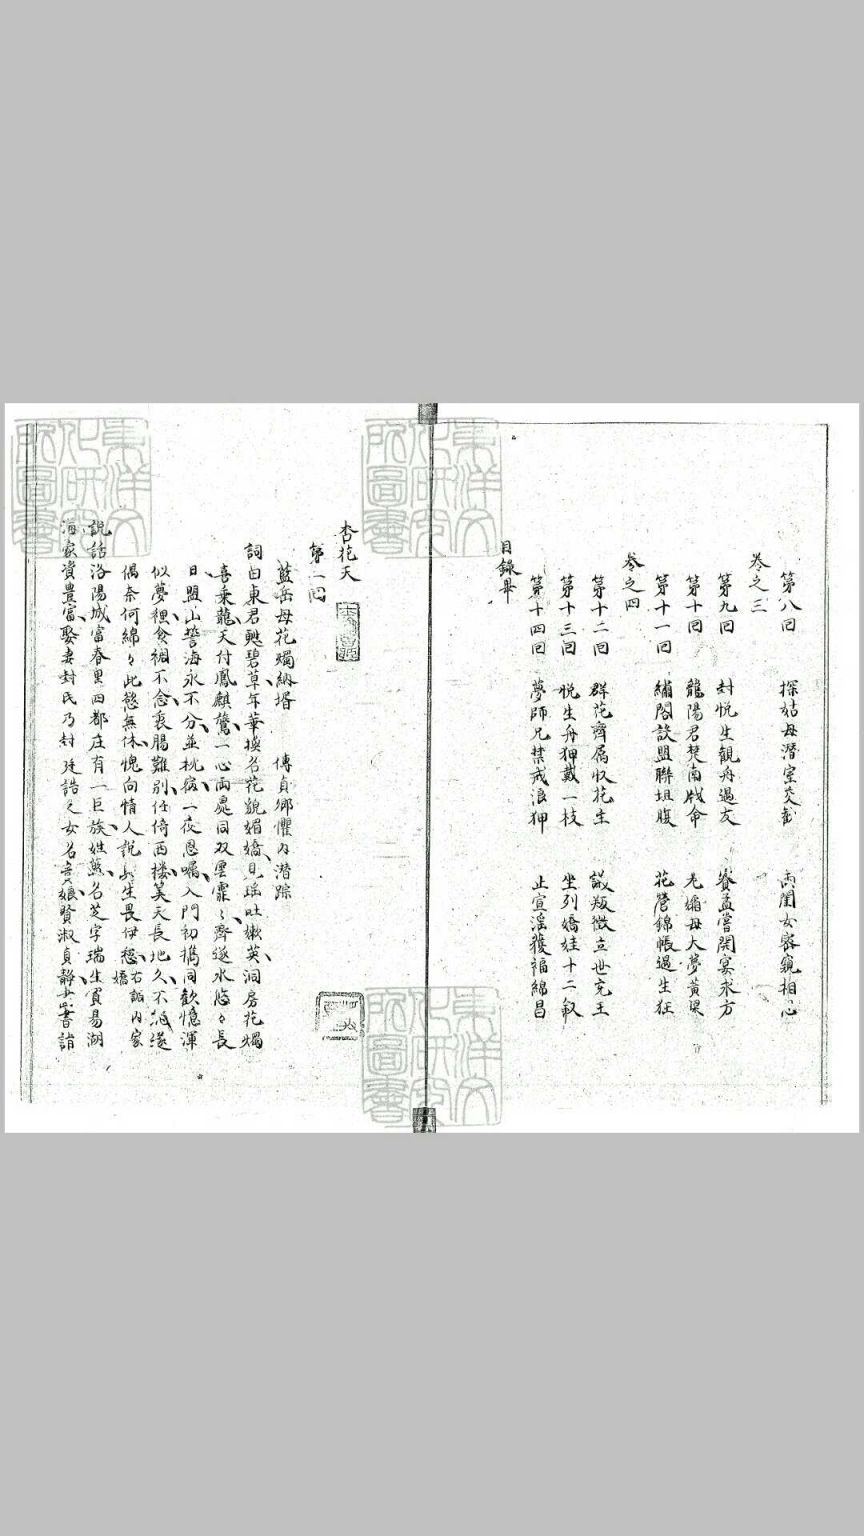 第八回 探姑母潛室交 兩閨女密窺相心
卷之三
第九回 封悅生觀舟遇友 養孟嘗開宴求方
第十回 龍陽君焚南戲命 老媚母大夢黃梁
第十一回 繡閣談盟聯坦腹 花營錦帳過生狂
卷之四
第十二回 群花齊屬收花生 議叛徵立世充王
第十三回 悅生舟狎戴一枝 坐列嬌娃十二釵
第十四回 夢師兄禁戒浪狎 止宣淫獲福綿昌
目錄畢
杏花天
第一回
藍岳母花燭納壻 傅貞卿懼內潛踪
詞曰東君甦碧草年華換名花貌媚嬌見瑤吐嫩英洞房花燭
喜乘龍天付鳳麒鸞一心兩晁同双雲霏々齊遂水悠々長
日盟山誓海永不分並枕宿一夜恩囑入門初擕同歡憶渾
似夢裡貪綢不念衷腸難別任倚西樓笑天長地久不 遂
偶奈何綿々此愁無休愧向情人說 生畏伊 嬌右 內家
說話洛陽城富春里四都庄有一巨族姓藍名芝字瑞生貿易湖
海家資豊富娶妻封民乃封廷誥之女名 娘賢淑貞靜 書詣
東洋文化研究所圖書